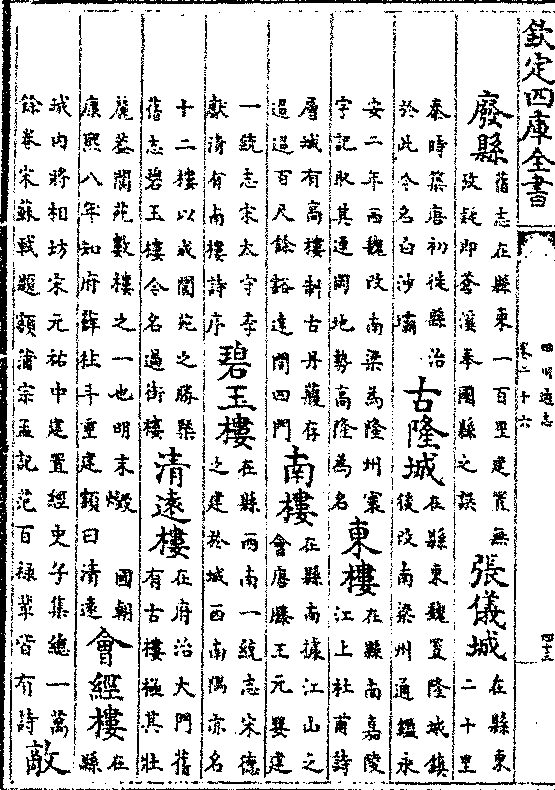 欽定四庫全書
四川通志
卷二十六
四十三
廢縣
舊志在縣東一百里建置無
考疑即蒼溪奉國縣之誤
張儀城
在縣東
二十里
秦時築唐初徙縣治
於此今名白沙壩
古隆城
在縣東魏置隆城鎮
後改南梁州通鑑永
安二年西魏改南梁為隆州寰
字記取其連岡地勢高隆為名
東樓
在縣南嘉陵
江上杜甫詩
層城有高樓制古丹雘存
迢迢百尺餘豁達開四門
南樓
在縣南據江山之
會唐滕王元嬰建
一統志宋太守李
獻清有南樓詩序
碧玉樓
在縣西南一統志宋德
之建於城西南隅亦名
十二樓以成閬苑之勝槩
舊志碧玉樓今名過街樓
清遠樓
在府治大門舊
有古樓極其壯
麗蓋閬苑數樓之一也明末燬 國朝
康熙八年知府薛柱斗重建額曰清遠
會經樓
在
縣
城内將相坊宋元祐中建置經史子集總一萬
餘卷宋蘇軾題額蒲宗孟記范百禄輩皆有詩
敵